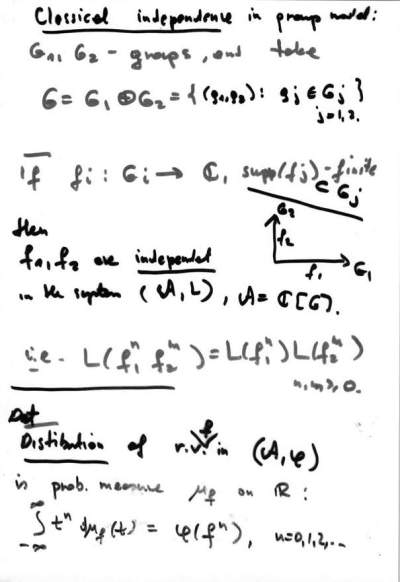 Classical independence in group model:
G₁, G₂ - groups, and take
G = G₁ ⊕ G₂ = { (g₁, g₂) : gj ∈ Gj }
j=1,2.
If fi : Gi → ℂ, supp(fj) - finite
⊂ Gj
then
f₁, f₂ are independent
in the system (A, L), A = ℂ[G].
G₂
f₂
f₁ G₁
i.e. L(f₁ⁿ f₂ᵐ) = L(f₁ⁿ) L(f₂ᵐ)
n, m ≥ 0.
Def
f
Distibution of r.v. in (A, φ)
is prob. measure μf on ℝ :
∫_{-∞}^{∞} tⁿ dμf(t) = φ(fⁿ), n=0,1,2,...